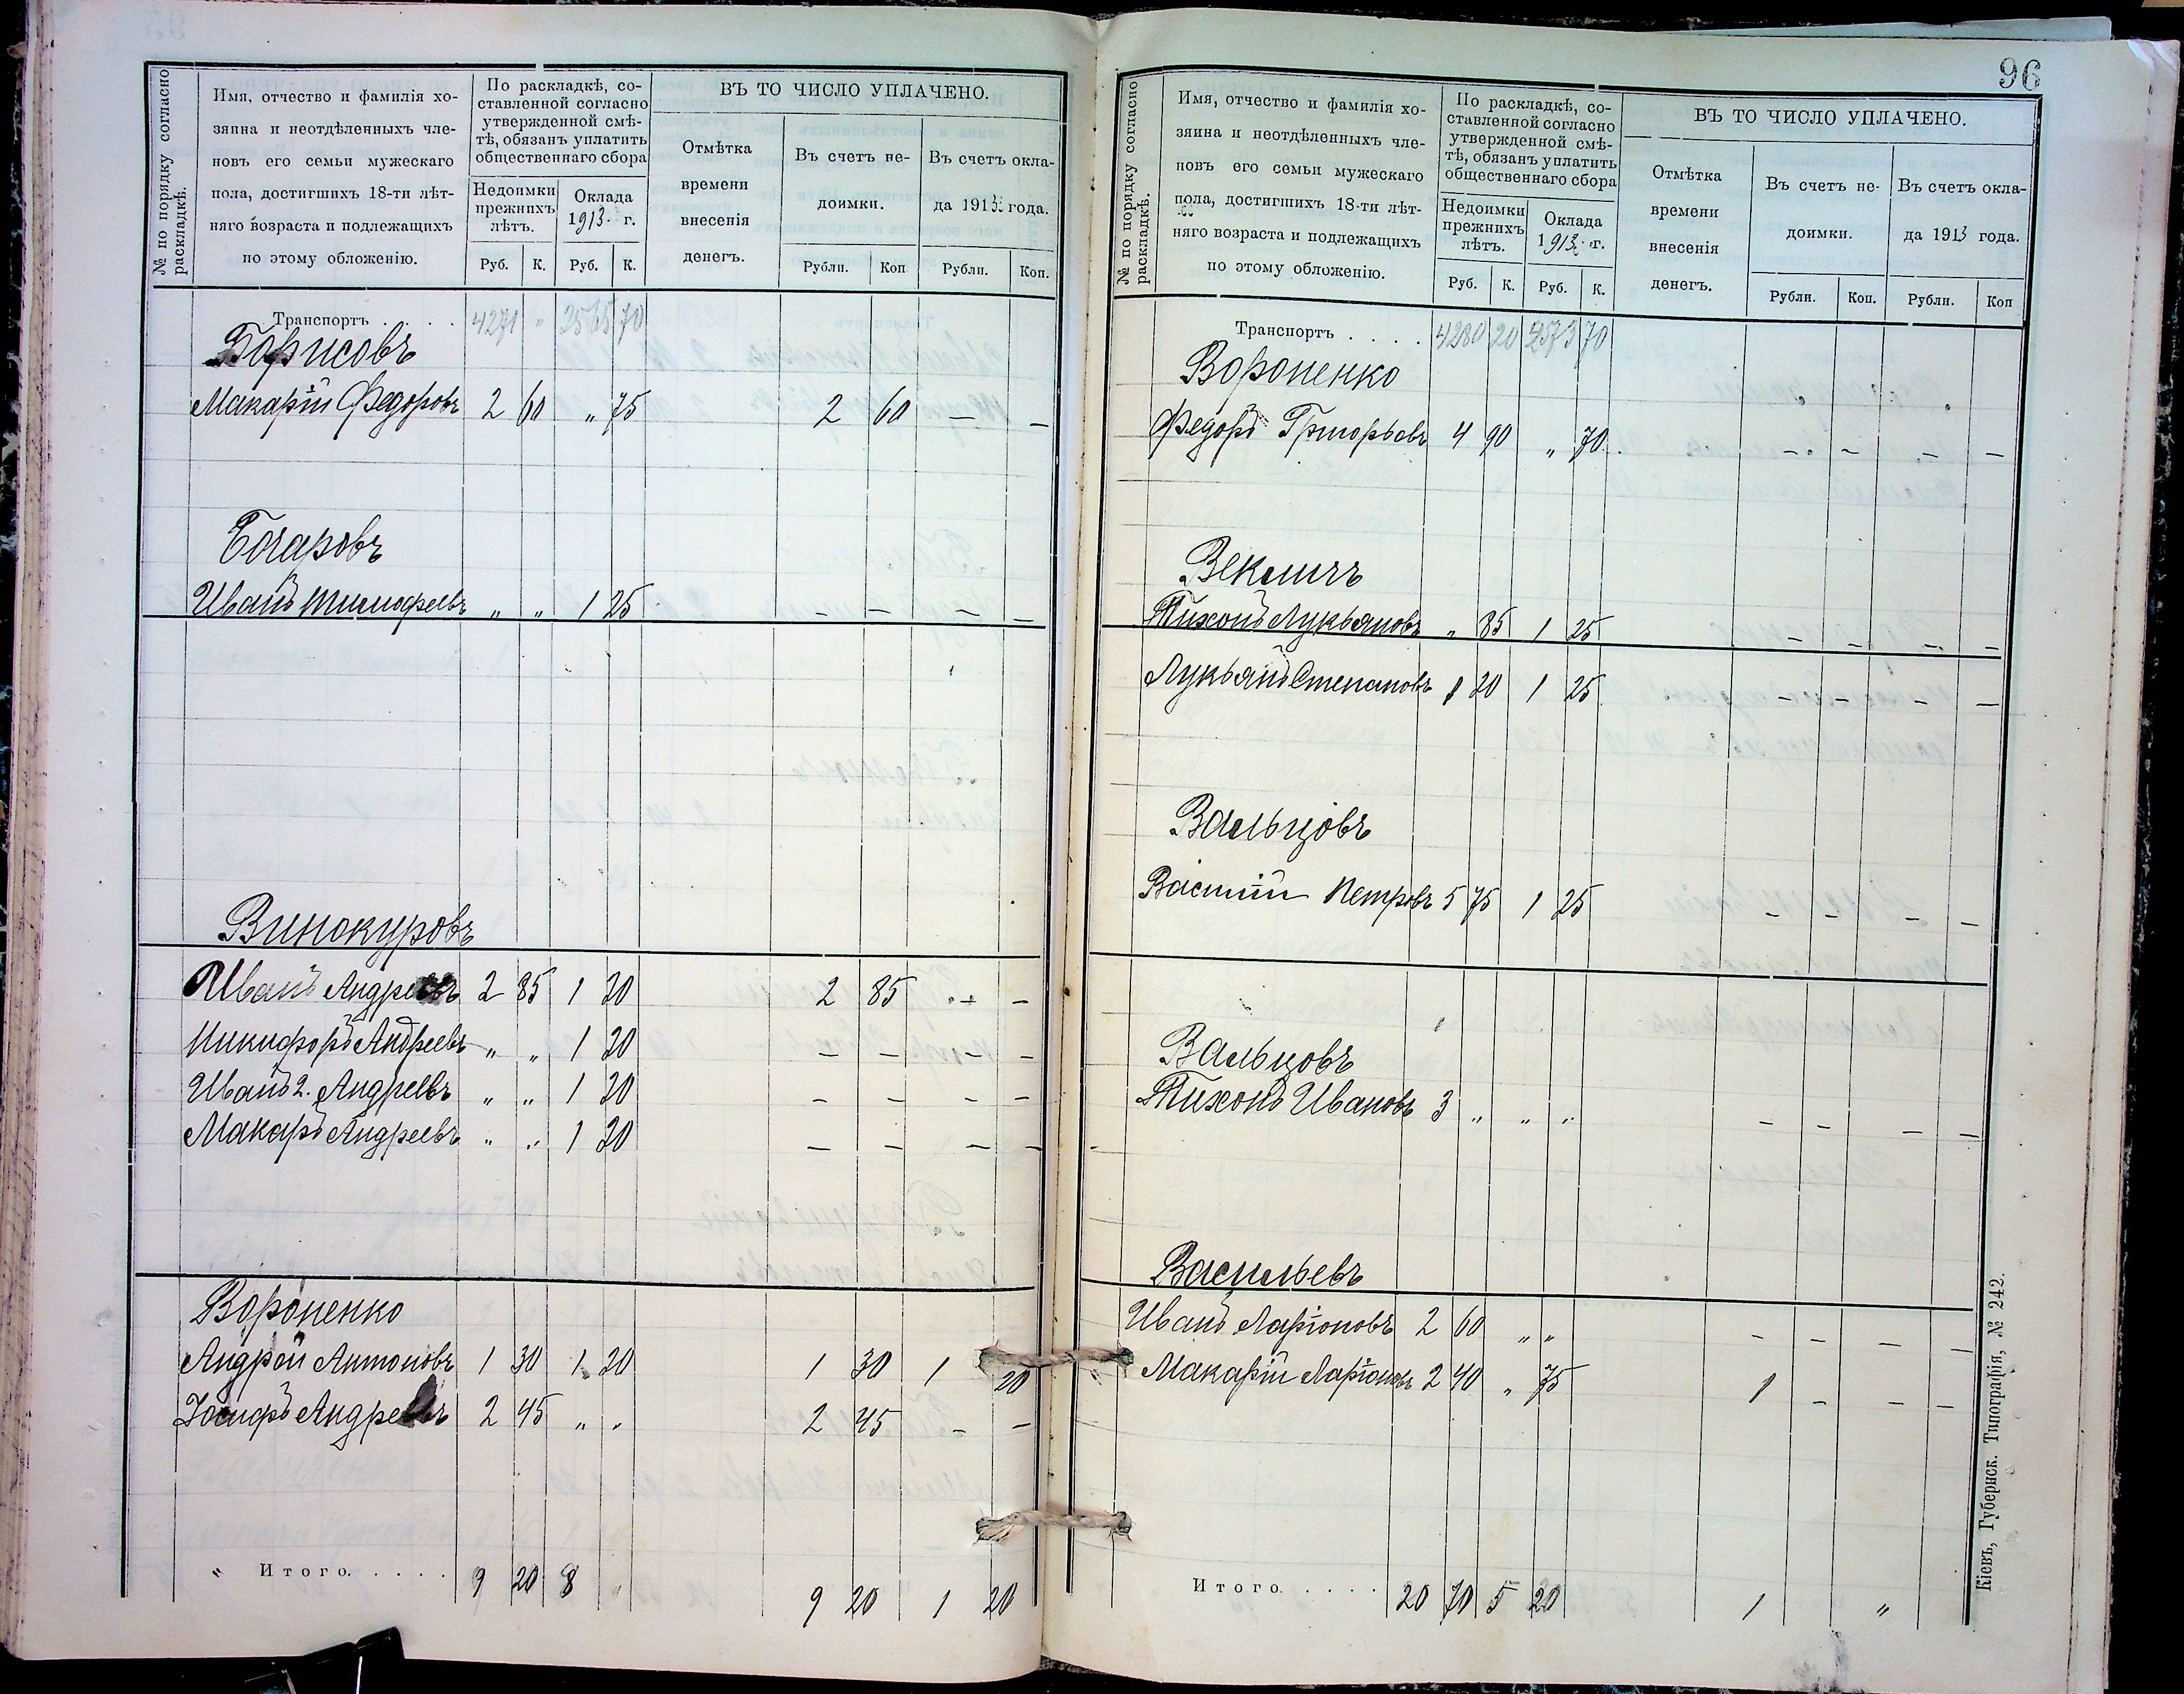 № по порядку согласно
раскладкѣ.
Имя, отчество и фамилія хо-
зяина и неотдѣленныхъ чле-
новъ его семьи мужескаго
пола, достигшихъ 18-ти лѣт-
няго возраста и подлежащихъ
по этому обложенію.
По раскладкѣ, со-
ставленной согласно
утвержденной смѣ-
тѣ, обязанъ уплатить
общественнаго сбора
Недоимки
прежнихъ
лѣтъ.
Оклада
1913 г.
Руб. К. Руб. К.
ВЪ ТО ЧИСЛО УПЛАЧЕНО.
Отмѣтка
времени
внесенія
денегъ.
Въ счетъ не-
доимки.
Въ счетъ окла-
да 1913 года.
Рубли. Коп Рубли. Коп.
Транспортъ . . . . 4271 " 2565 70
Борисовъ
Макарій Федоровъ 2 60 " 75 2 60 — —
Бочаровъ
Иванъ Тимофеевъ " " 1 25 — — — —
Винокуровъ
Иванъ Андреевъ 2 85 1 20 2 85 — —
Никифоръ Андреевъ " " 1 20 — — — —
Иванъ 2. Андреевъ " " 1 20 — — — —
Макаръ Андреевъ " " 1 20 — — — —
Вороненко
Андрей Антоновъ 1 30 1 20 1 30 1 20
Іосифъ Андреевъ 2 45 " " 2 45 — —
" Итого. . . . . 9 20 8 " 9 20 1 20
96
№ по порядку согласно
раскладкѣ.
Имя, отчество и фамилія хо-
зяина и неотдѣленныхъ чле-
новъ его семьи мужескаго
пола, достигшихъ 18-ти лѣт-
няго возраста и подлежащихъ
по этому обложенію.
По раскладкѣ, со-
ставленной согласно
утвержденной смѣ-
тѣ, обязанъ уплатить
общественнаго сбора
Недоимки
прежнихъ
лѣтъ.
Оклада
1913 г.
Руб. К. Руб. К.
ВЪ ТО ЧИСЛО УПЛАЧЕНО.
Отмѣтка
времени
внесенія
денегъ.
Въ счетъ не-
доимки.
Въ счетъ окла-
да 1913 года.
Рубли. Коп. Рубли. Коп
Транспортъ . . . . 4280 20 2573 70
Вороненко
Федоръ Григорьевъ 4 90 " 70 — — — —
Векличъ
Тихонъ Лукьяновъ " 85 1 25 — — — —
Лукьянъ Степановъ 1 20 1 25 — — — —
Вальцовъ
Василій Петровъ 5 75 1 25 — — — —
Вальцовъ
Тихонъ Ивановъ 3 " " " — — — —
Васильевъ
Иванъ Ларіоновъ 2 60 " " — — — —
Макарій Ларіоновъ 2 40 " 75 1 — — —
Итого. . . . . 20 70 5 20 1 "
Кіевъ, Губернск. Типографія, № 242.